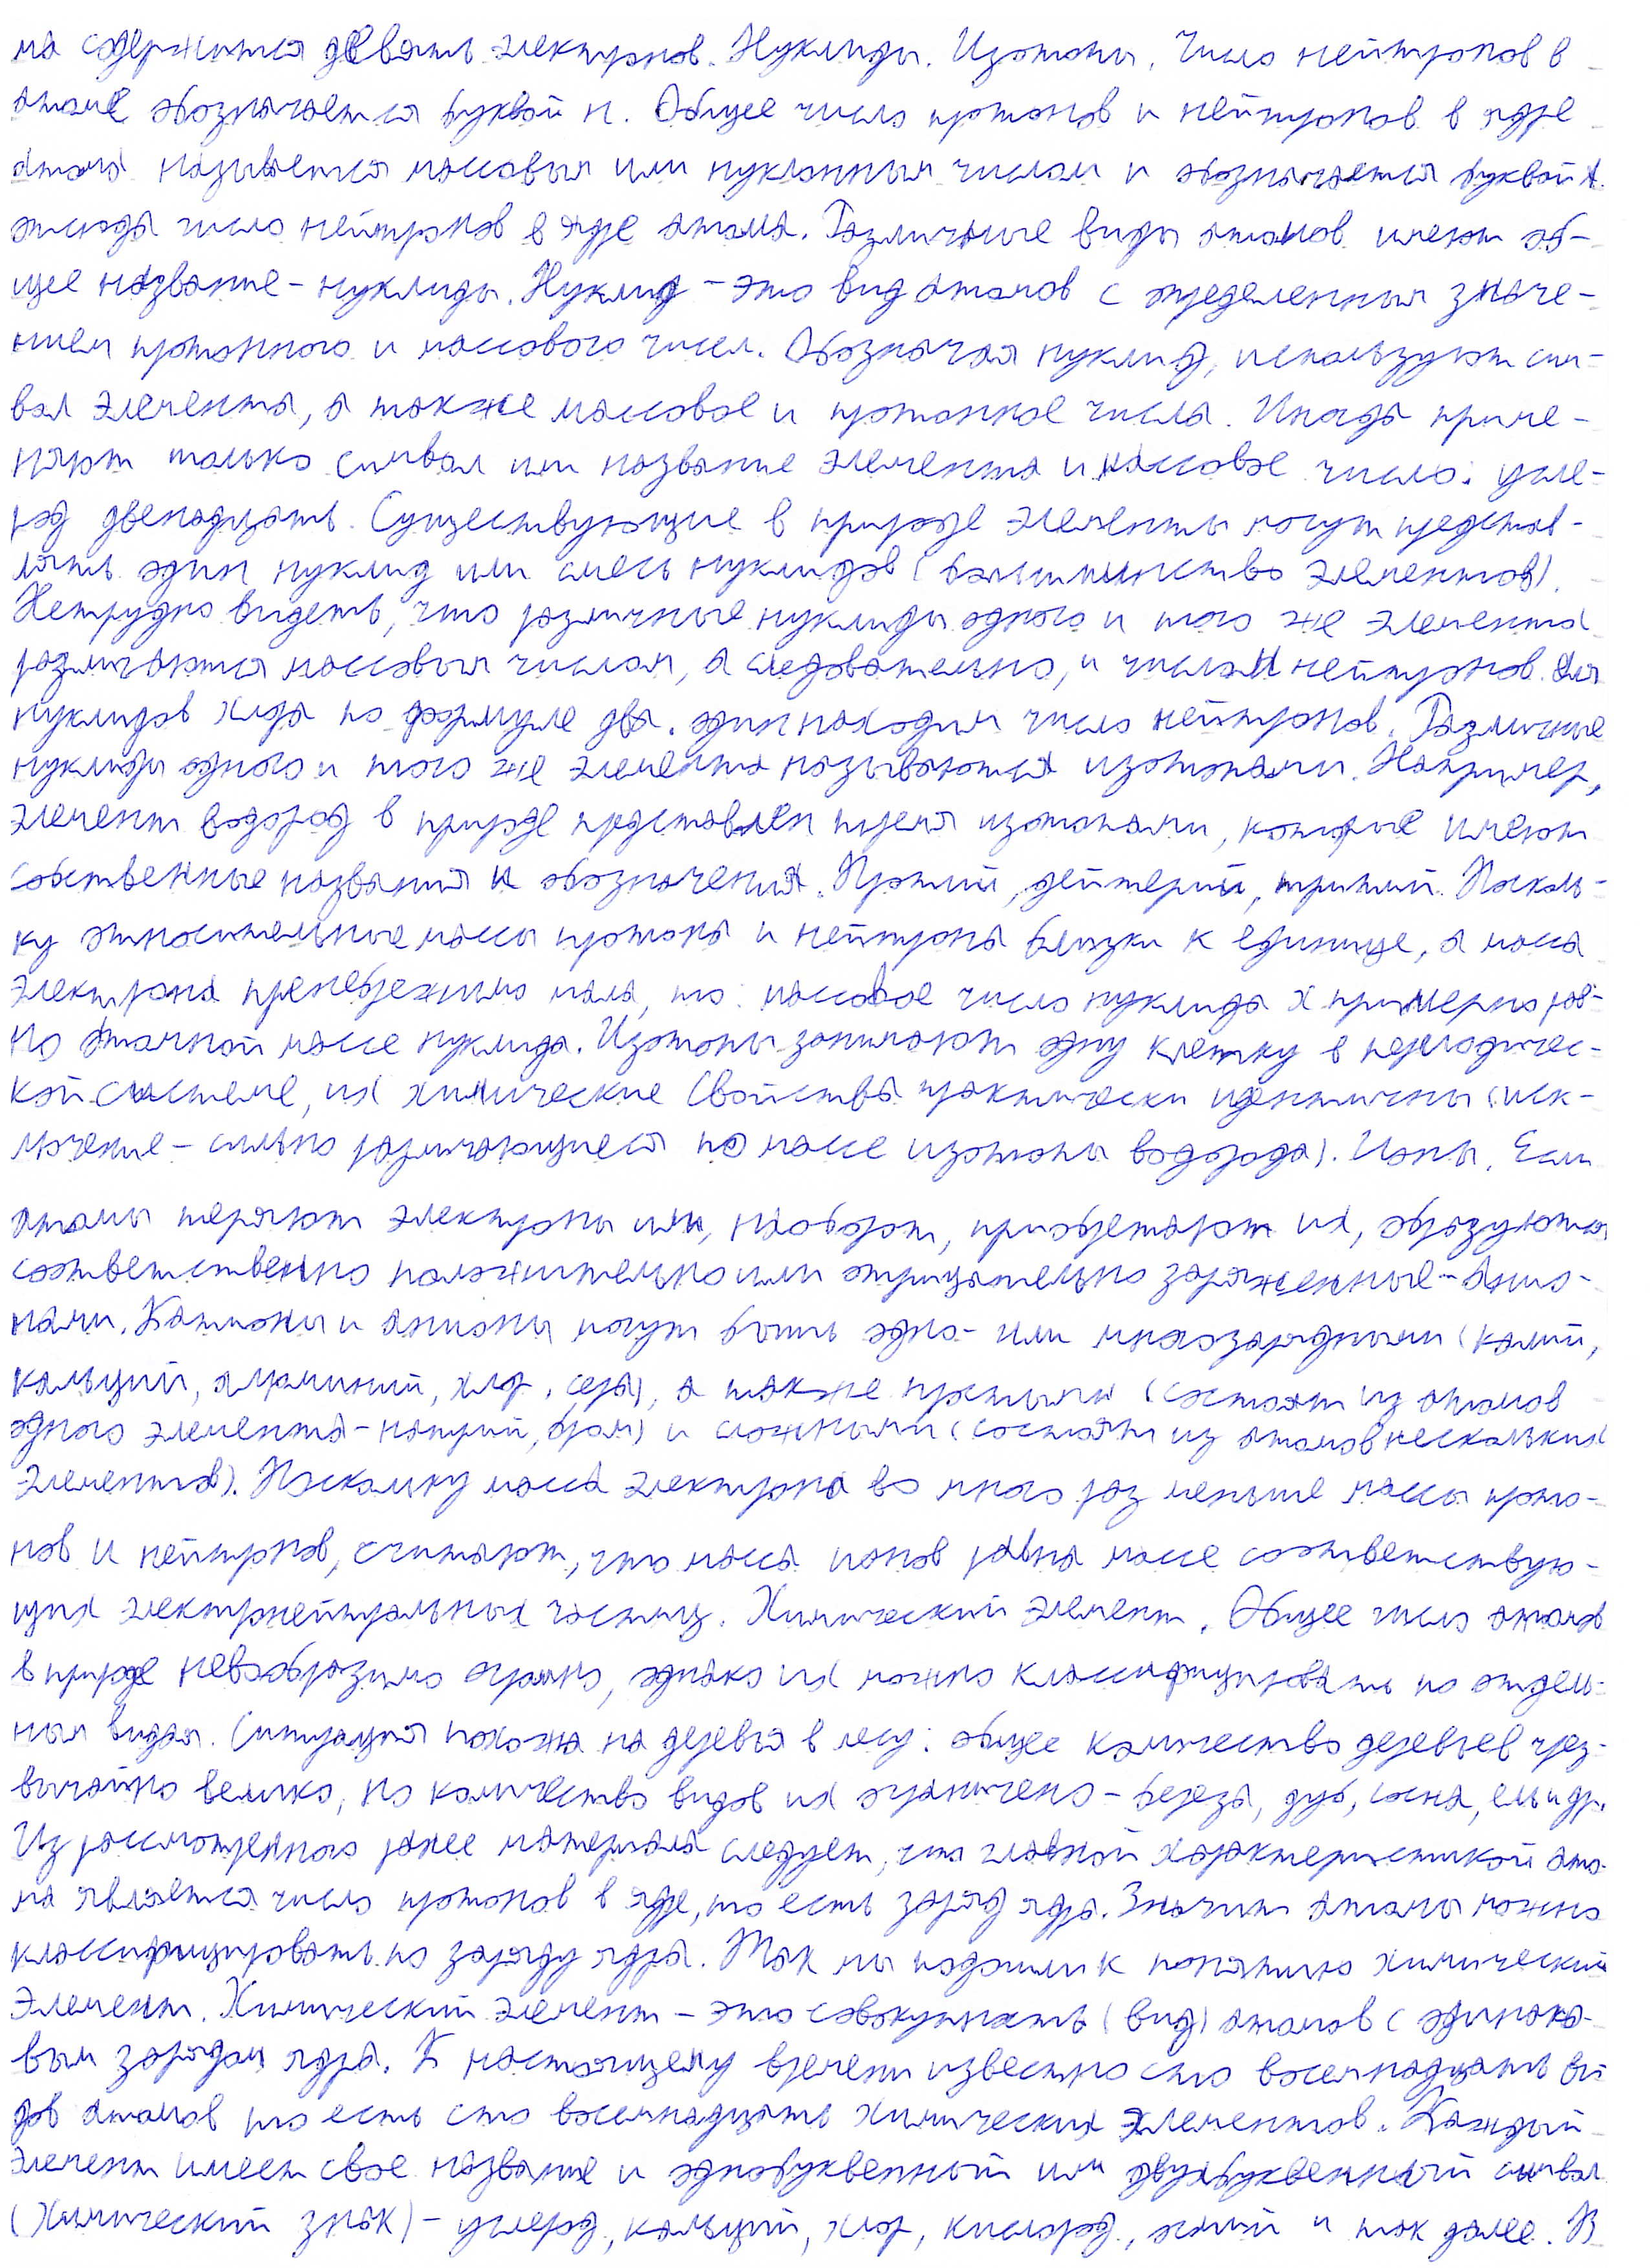 ма содержится девять электронов. Нуклиды. Изотопы. Число нейтронов в
атоме обозначается буквой н. Общее число протонов и нейтронов в ядре
атома называется массовым или нуклонным числом и обозначается буквой А.
отсюда число нейтронов в ядре атома. Различные виды атомов имеют об-
щее название - нуклиды. Нуклид - это вид атомов с определенным значе-
нием протонного и массового чисел. Обозначая нуклид, используют сим-
вол элемента, а также массовое и протонное числа. Иногда приме-
няют только символ или название элемента и массовое число: угле-
род двенадцать. Существующие в природе элементы могут представ-
лять один нуклид или смесь нуклидов (большинство элементов).
Нетрудно видеть, что различные нуклиды одного и того же элемента
различаются массовым числом, а следовательно, и числом нейтронов. Для
нуклидов хлора по формуле два. один находим число нейтронов. Различные
нуклиды одного и того же элемента называются изотопами. Например,
элемент водород в природе представлен тремя изотопами, которые имеют
собственные названия и обозначения. Протий, дейтерий, тритий. Посколь-
ку относительные массы протона и нейтрона близки к единице, а масса
электрона пренебрежимо мала, то: массовое число нуклида х примерно рав-
но атомной массе нуклида. Изотопы занимают одну клетку в периодичес-
кой системе, их химические свойства практически идентичны (иск-
лючение - сильно различающиеся по массе изотопы водорода). Ионы. Если
атомы теряют электроны или, наоборот, приобретают их, образуются
соответственно положительно или отрицательно заряженные - анио-
нами. Катионы и анионы могут быть одно- или многозарядными (калий,
кальций, алюминий, хлор, сера), а также простыми (состоят из атомов
одного элемента - натрий, бром) и сложными (состоят из атомов нескольких
элементов). Поскольку масса электрона во много раз меньше массы прото-
нов и нейтронов, считают, что масса ионов равна массе соответствую-
щих электронейтральных частиц. Химический элемент. Общее число атомов
в природе невообразимо огромно, однако их можно классифицировать по отдель-
ным видам. Ситуация похожа на деревья в лесу: общее количество деревьев чрез-
вычайно велико, но количество видов их ограничено - береза, дуб, сосна, ель и др.
Из рассмотренного ранее материала следует, что главной характеристикой ато-
ма является число протонов в ядре, то есть заряд ядра. Значит атомы можно
классифицировать по заряду ядра. Так мы подошли к понятию химический
элемент. Химический элемент - это совокупность (вид) атомов с одинако-
вым зарядом ядра. К настоящему времени известно сто восемнадцать ви
дов атомов то есть сто восемнадцать химических элементов. Каждый
элемент имеет свое название и однобуквенный или двухбуквенный символ
(химический знак) - углерод, кальций, хлор, кислород, и так далее. В